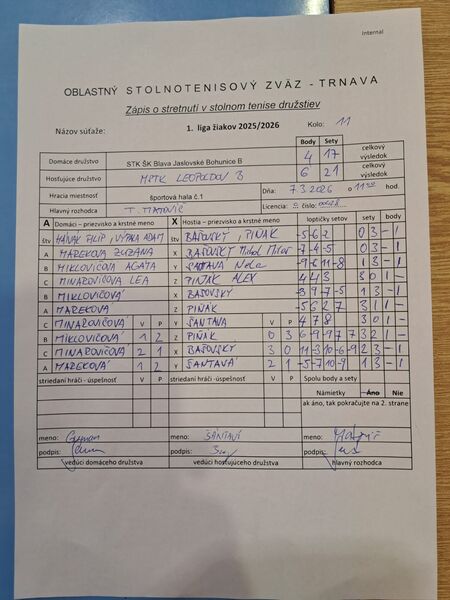 Internal
OBLASTNÝ STOLNOTENISOVÝ ZVÄZ - TRNAVA
Zápis o stretnutí v stolnom tenise družstiev
Názov súťaže: 1. liga žiakov 2025/2026 Kolo: 11
Body Sety
Domáce družstvo STK ŠK Blava Jaslovské Bohunice B 4 17 celkový výsledok
Hosťujúce družstvo MSTK LEOPOLDOV B 6 21 celkový výsledok
Hracia miestnosť športová hala č.1 Dňa: 7.3.2026 o hod.
Hlavný rozhodca Licencia: číslo:
A Domáci - priezvisko a krstné meno X Hostia - priezvisko a krstné meno loptičky setov sety body
štv HANÁK FILIP, VÝPNA ADAM štv BAŤOVSKÝ, PIŇÁK -5 6 2 0 3 - 1
A MAREKOVÁ ZUZANA X BAŤOVSKÝ -7 -4 -5 0 3 - 1
B MIKLOVIČOVÁ AGÁTA Y ŠANTAVÁ Nela -9 6 11 -8 1 3 - 1
C MINAROVIČOVÁ LEA Z PIŇÁK ALEX 4 4 3 3 0 1 -
B MIKLOVIČOVÁ X BAŤOVSKÝ -3 9 7 -5 1 3 - 1
A MAREKOVÁ Z PIŇÁK -5 6 2 7 3 1 1 -
C MINAROVIČOVÁ V P Y ŠANTAVÁ V P 4 7 8 3 0 1 -
B MIKLOVIČOVÁ 1 2 Z PIŇÁK 0 3 6 -9 -9 7 7 3 2 1 -
C MINAROVIČOVÁ 2 1 X BAŤOVSKÝ 3 0 11 -3 10 -6 -9 2 3 - 1
A MAREKOVÁ 1 2 Y ŠANTAVÁ 2 1 -5 -7 10 -9 1 3 - 1
striedaní hráči - úspešnosť V P striedaní hráči - úspešnosť V P Spolu body a sety
Námietky Áno Nie
ak áno, tak pokračujte na 2. strane
meno: meno: ŠANTAVÝ meno:
podpis: podpis: podpis:
vedúci domáceho družstva vedúci hosťujúceho družstva hlavný rozhodca